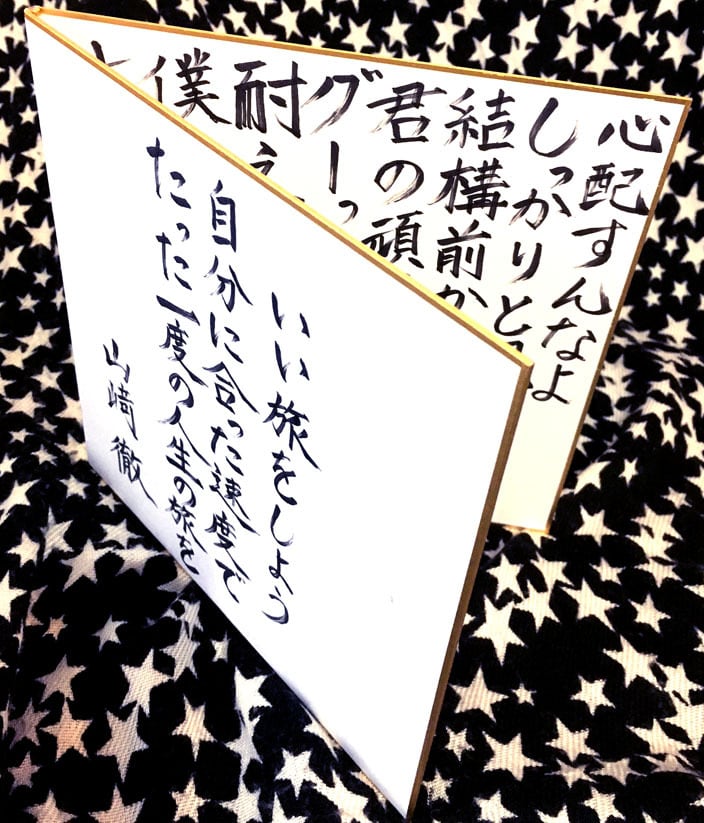 心配すんなよ
しっかりと
結構前か
君の頑
グーっ
耐え
僕
いい旅をしよう
自分に合った速度で
たった一度の人生の旅を
山﨑徹